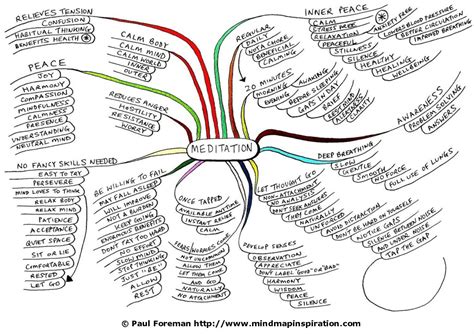 RELIEVES TENSION
CONFUSION
HABITUAL THINKING
BENEFITS HEALTH
PEACE
JOY
HARMONY
COMPASSION
MINDFULNESS
CALMNESS
PRESENCE
UNDERSTANDING
NEUTRAL MIND
NO FANCY SKILLS NEEDED
EASY TO TRY
PERSEVERE
MIND LOVES TO THINK
RELAX BODY
RELAX MIND
PATIENCE
ACCEPTANCE
QUIET SPACE
SIT OR LIE
COMFORTABLE
RESTED
LET GO
CALM BODY
CALM MIND
CALM WORLD
INNER
OUTER
REDUCES ANGER
HOSTILITY
RESISTANCE
WORRY
MEDITATION
BE WILLING TO FAIL
MAY FALL ASLEEP
WILL IMPROVE
NOT A RACE
KEEP GOING
ENORMOUS BENEFITS
DON'T TRY TOO HARD
NO EFFORT
SLOW MIND
STOP THINKING
JUST BE
ALLOW
LET GO
ONCE TAPPED
AVAILABLE ANYTIME
INSTANT ACCESS
CALM
FEARS/WORRIES COME
NOT UNCOMMON
ALLOW THEM
LET THEM COME
LET THEM GO
NATURALLY
NO ATTACHMENT
DEVELOP SENSES
OBSERVATION
APPRECIATE
DON'T LABEL "GOOD" OR "BAD"
HARMONY
WISDOM
PEACE
SILENCE
REGULAR
DAILY
NOT A CHORE
BENEFICIAL
CALMING
20 MINUTES
MORNING
EVENING
BEFORE SLEEPING
GAPS IN DAY
BRIEF
CLARITY
INNER PEACE
CALM
STRESS FREE
RELAXATION
PEACEFUL
STILLNESS
SILENCE
HEALTHY
HEALING
WELL-BEING
ANXIETY FREE
LOWERS BLOOD PRESSURE
BETTER CIRCULATION
IMPROVED BREATHING
AWARENESS
PROBLEM SOLVING
ANSWERS
DEEP BREATHING
SLOW
GENTLE
SMOOTH
NO FORCE
FULL USE OF LUNGS
LET THOUGHT GO
NO ATTACHMENT
NO ANALYSIS
DON'T SEEK ANSWERS
THEY COME
NATURALLY
UNFORCED
AVOID DISTRACTION
DON'T BE HARD ON YOURSELF
NOTICE GAPS
SILENCE BETWEEN NOISE
AND UNDER NOISE
TAP THE GAP
© Paul Foreman http://www.mindmapinspiration.com